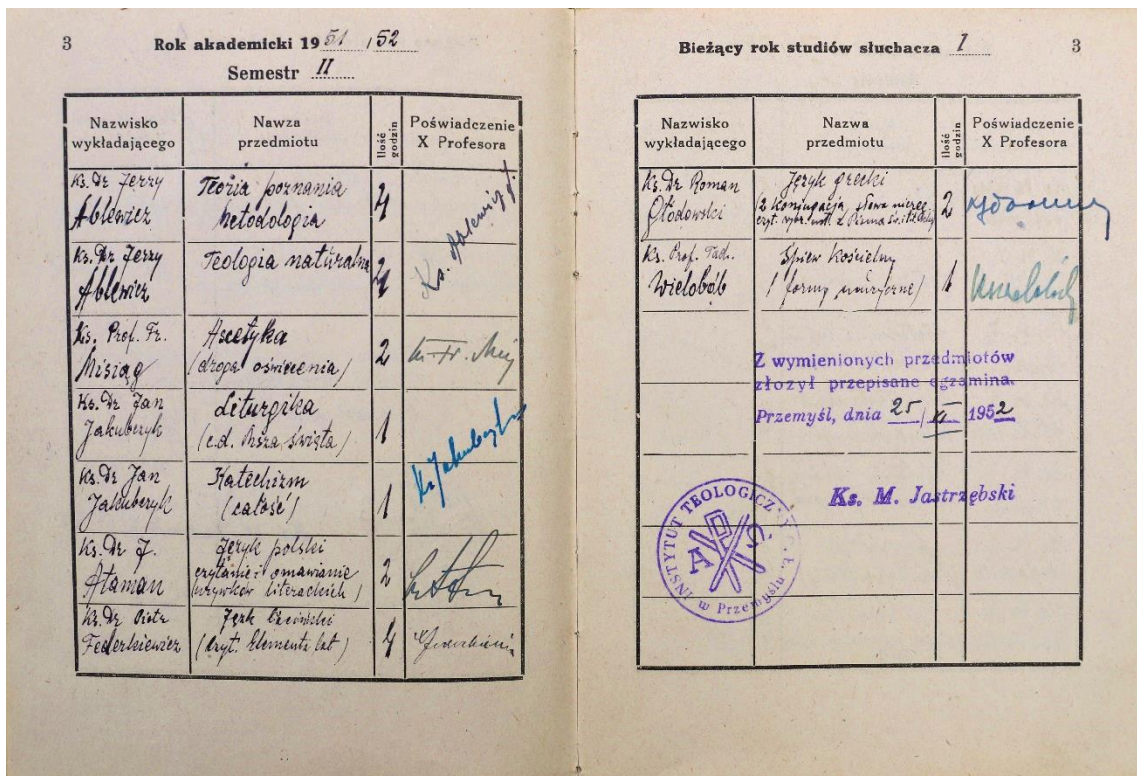 3
Rok akademicki 1951/52
Semestr II
Nazwisko wykładającego
Nawza przedmiotu
Ilość godzin
Poświadczenie X Profesora
Ks. Dr Jerzy
Ablewicz
Teoria poznania
metodologia
4
Ks. Ablewicz J.
Ks. Dr Jerzy
Ablewicz
Teologia naturalna
4
Ks. Prof. Fr.
Misiąg
Ascetyka
(droga oświecenia)
2
Ks. Dr Jan
Jakubczyk
Liturgika
(c.d. Msza święta)
1
Ks. Jakubczyk
Ks. Dr Jan
Jakubczyk
Katechizm
(całość)
1
Ks. Dr J.
Ataman
Język polski
czytanie i omawianie
urywków literackich)
2
Ks. Dr Piotr
Federkiewicz
Język łaciński
(czyt. Elementa lat)
4
Bieżący rok studiów słuchacza I
3
Nazwisko wykładającego
Nazwa przedmiotu
Ilość godzin
Poświadczenie X Profesora
Ks. Dr Roman
Głodowski
Język grecki
(2 konjugacja, słowa niereg.
2
Ks. Prof. Tad.
Wielobób
Śpiew kościelny
/ formy muzyczne/
1
Z wymienionych przedmiotów
złożył przepisane egzamina.
Przemyśl, dnia 25/VI 1952
Ks. M. Jastrzębski
INSTYTUT TEOLOGICZNY
w Przemyślu
A C